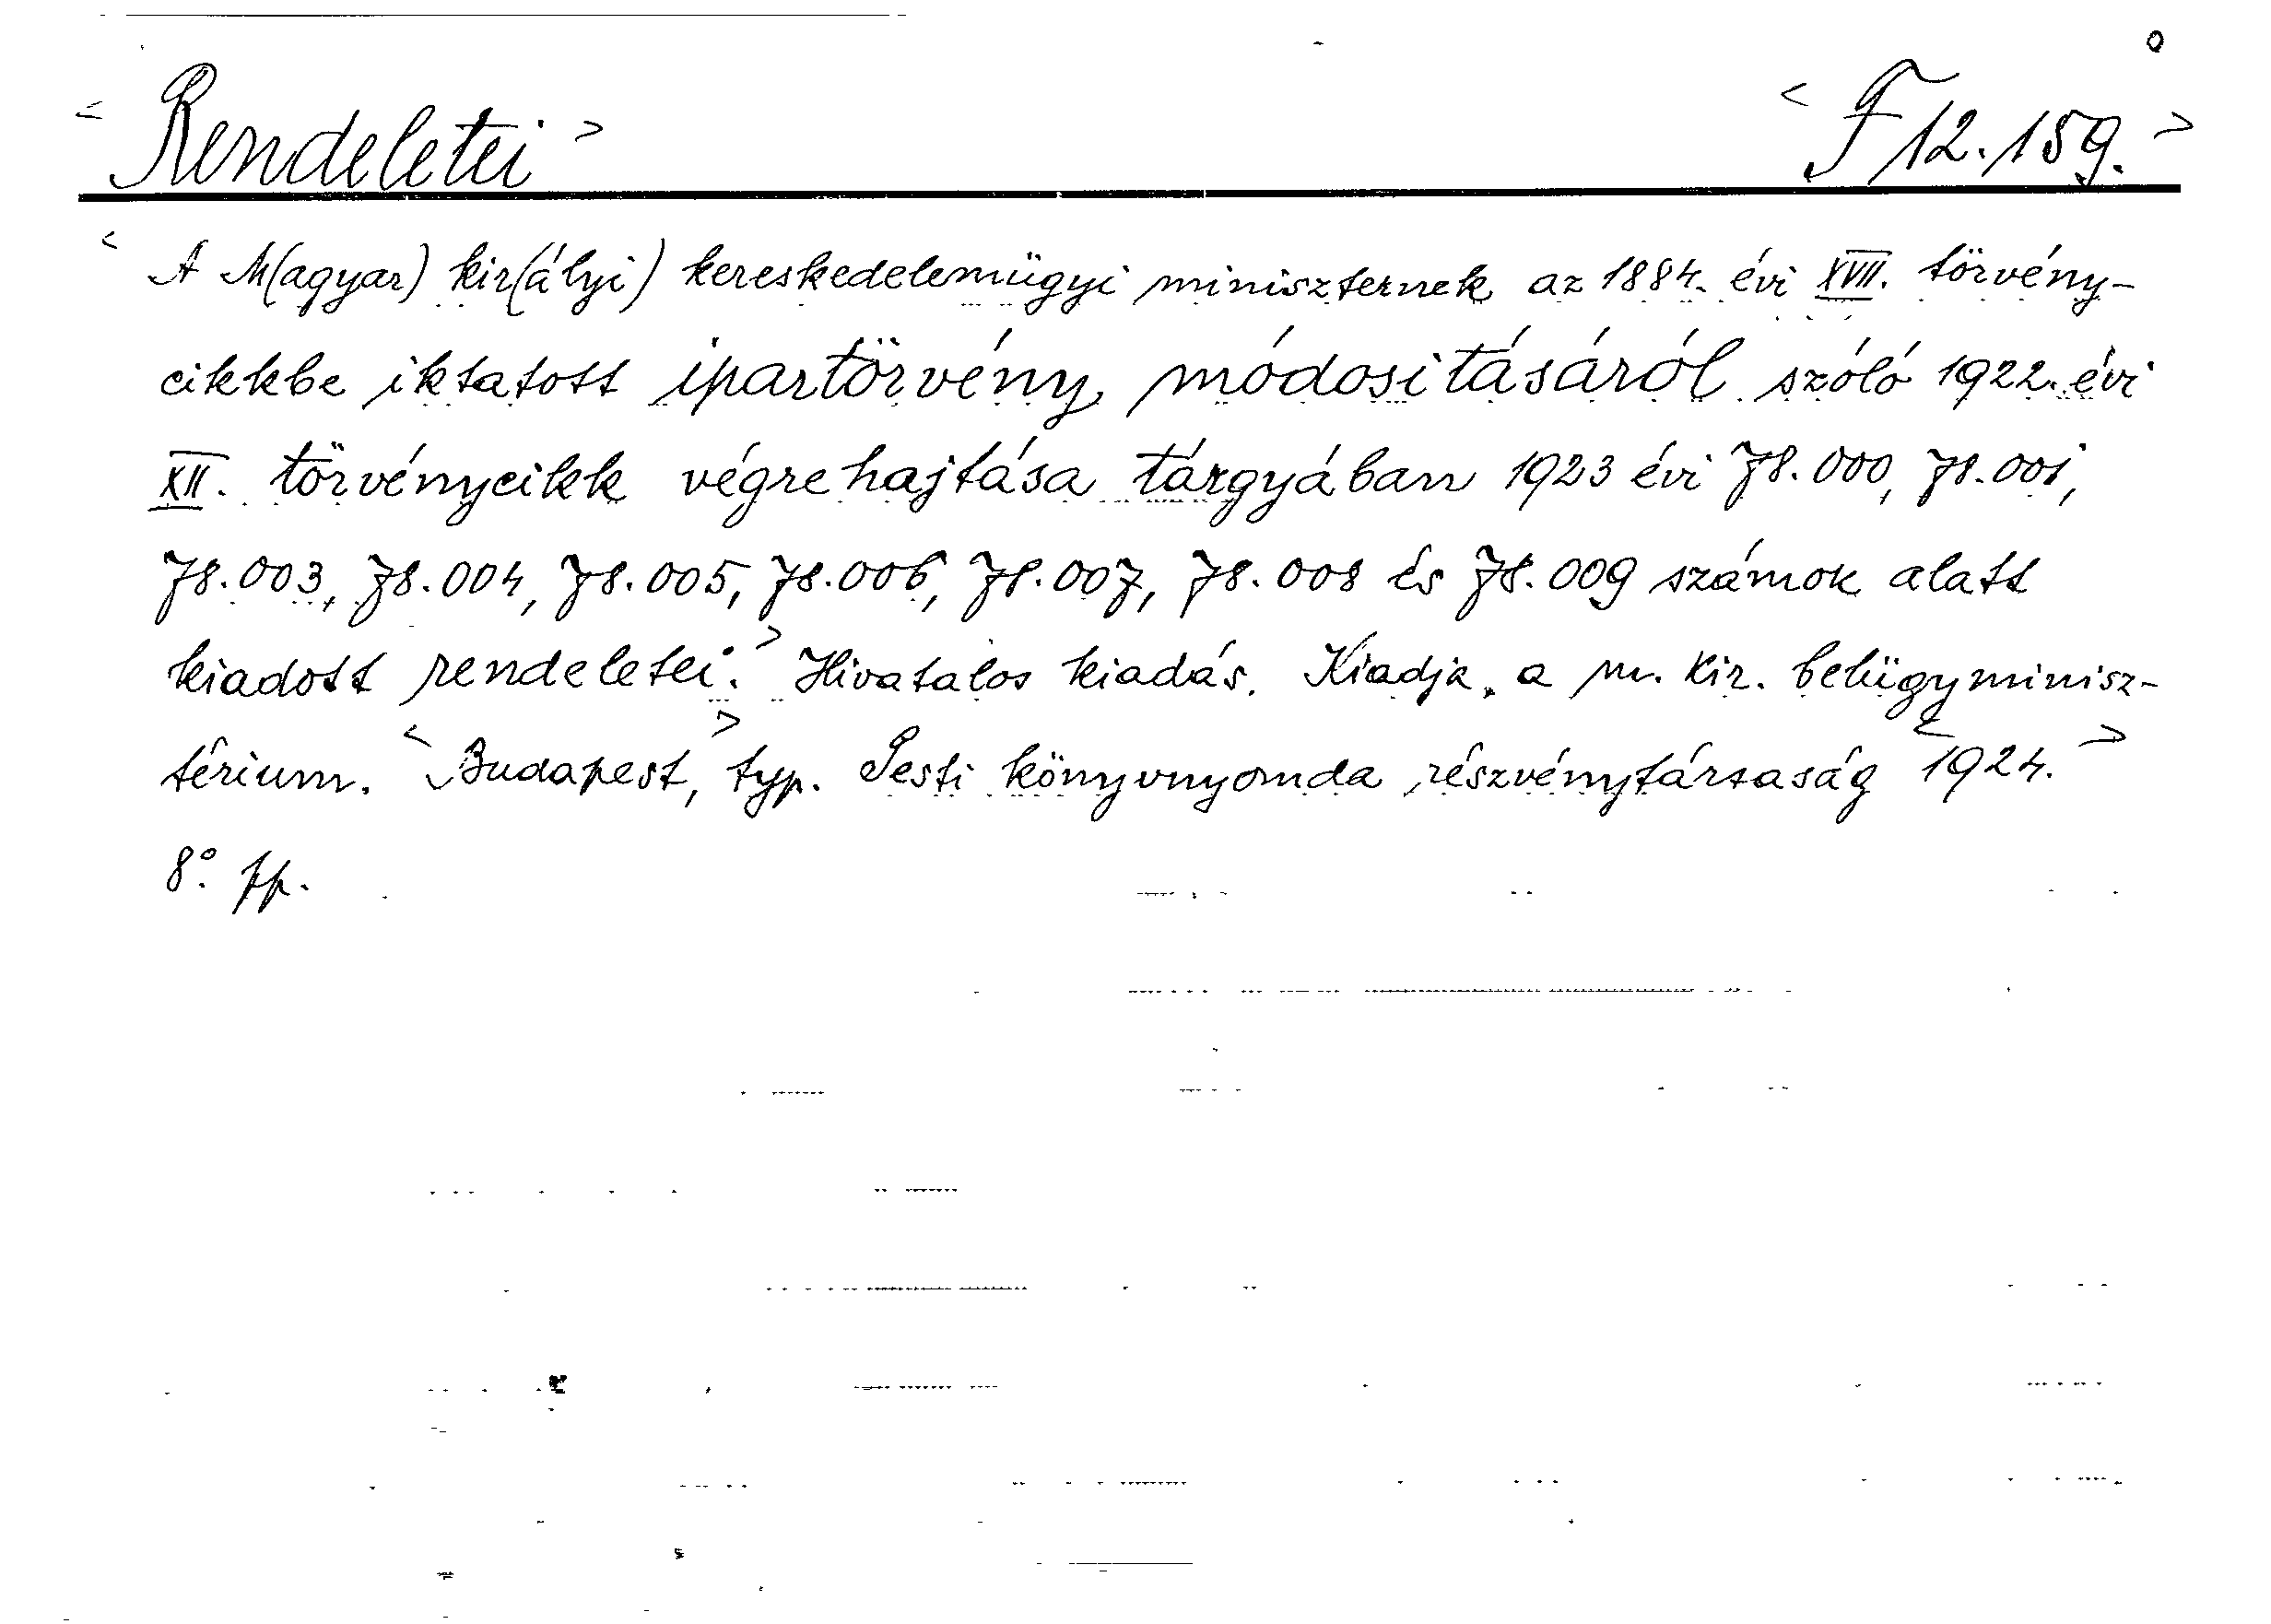 < Rendeletei >
< F 12.159. >
< A M(agyar) kir(ályi) kereskedelemügyi miniszternek az 1884. évi XVII. törvény-
cikkbe iktatott ipartörvény módositásáról szóló 1922. évi
XII. törvénycikk végrehajtása tárgyában 1923 évi 78.000, 78.001,
78.003, 78.004, 78.005, 78.006, 78.007, 78.008 és 78.009 számok alatt
kiadott rendeletei. > Hivatalos kiadás. Kiadja a m. kir. belügyminisz-
térium. < Budapest, > typ. Pesti könyvnyomda részvénytársaság < 1924. >
8°. pp.